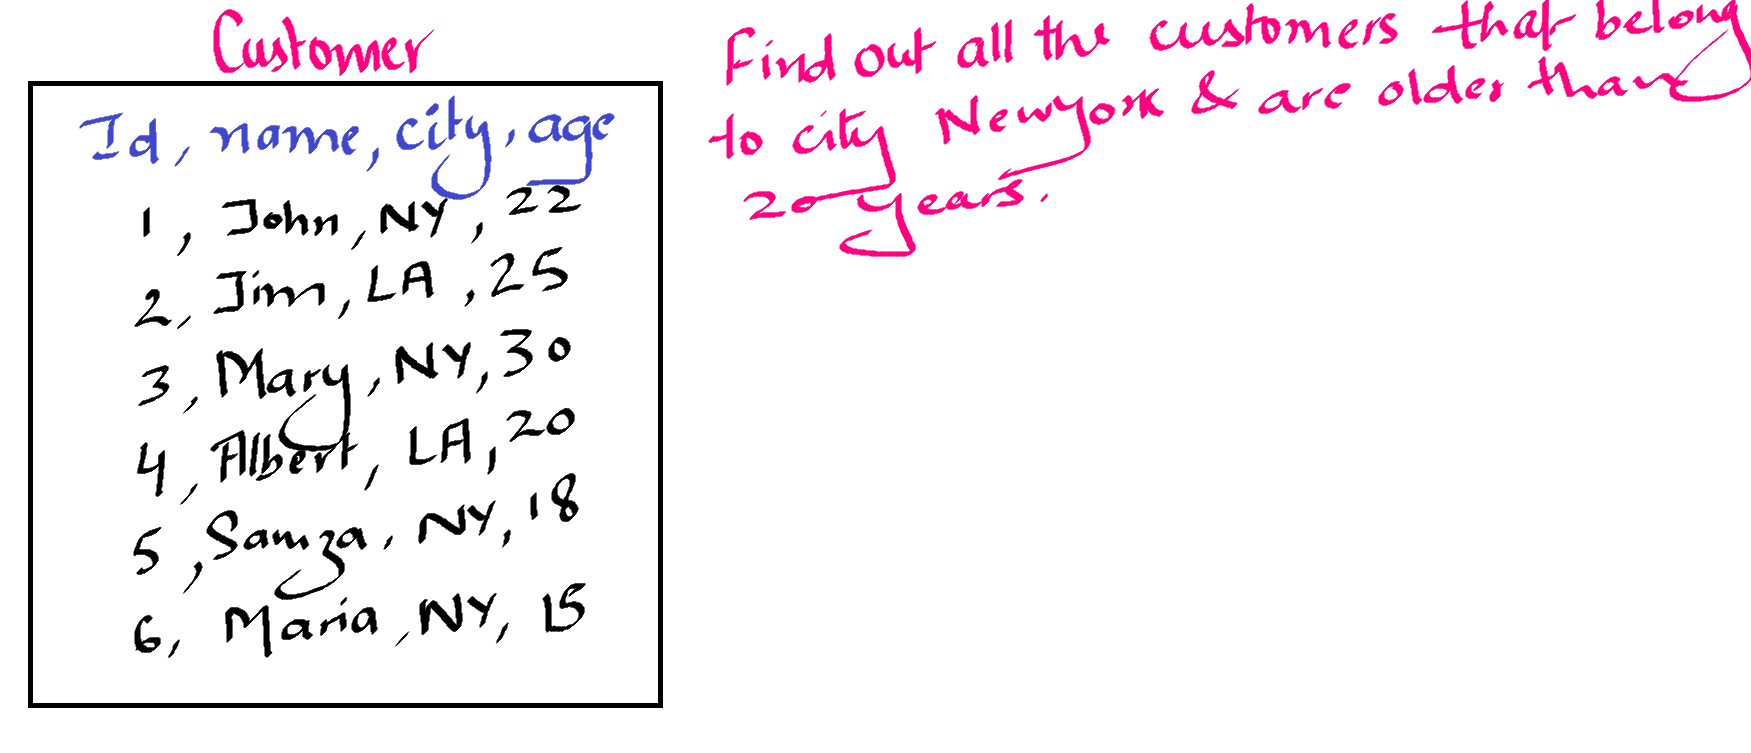 Customer
Id, name, city, age
1, John, NY, 22
2, Jim, LA, 25
3, Mary, NY, 30
4, Albert, LA, 20
5, Samza, NY, 18
6, Maria, NY, 15
Find out all the customers that belong
to city Newyork & are older than
20 years.